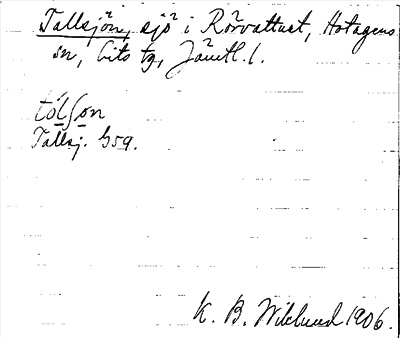 Tallsjön, sjö i Rörvattnet, Hotagens
sn, Lits tg, Jämtl. l.
tól∫on
Tallsj. G59.
K. B. Wiklund 1906.